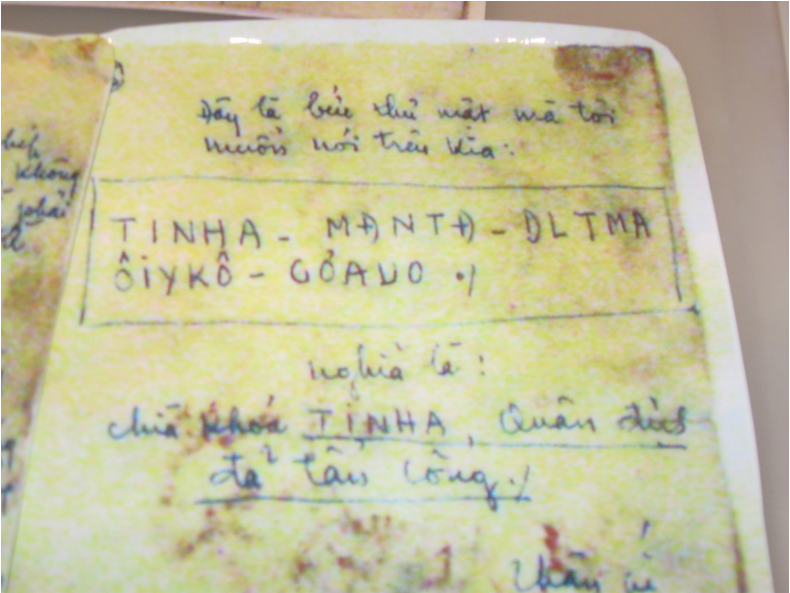 Đây là bức thư mật mã tôi
muốn nói trên kia:
TINHA - MĐNTĐ - ĐLTMA
ÔIYKÔ - GỎAUO ./
nghĩa là:
chìa khóa TINHA, Quân địch
đã tấn công ./
không
phải
Thân ái